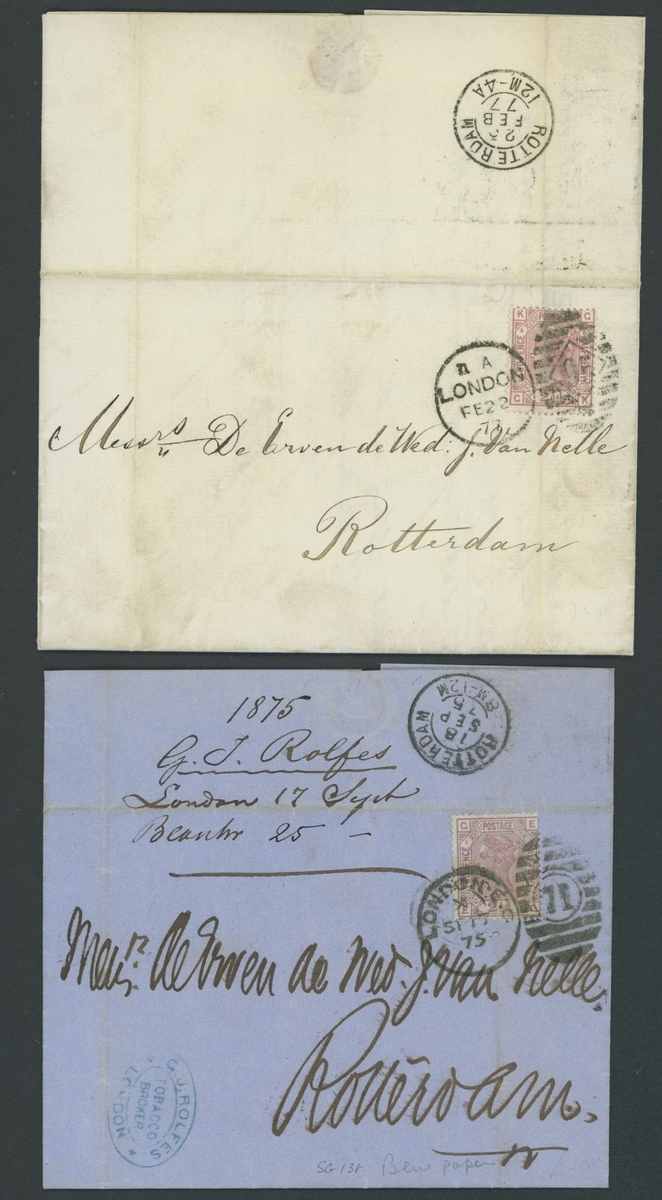 ROTTERDAM
FEB
77
12M-4A
K G
G K
A
LONDON
FE22
77
Messrs De Erven de Wed: J. Van Nelle
Rotterdam
1875
G. J. Rolfes
London 17 Sept
Beantw 25 —
ROTTERDAM
18
SEP
75
8M-12M
G POSTAGE E
LONDON. E.C
75
71
Messrs. de Erven de Wed. J. Van Nelle,
Rotterdam.
G. J. ROLFES
TOBACCO
BROKER
LONDON
SG 138 Blue paper